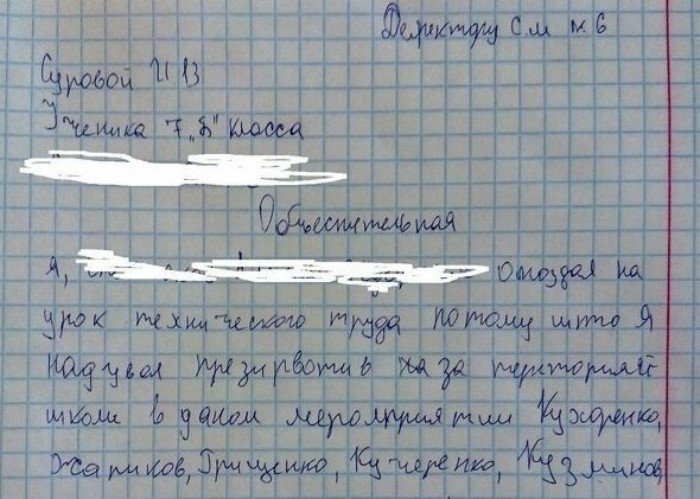 Деректору С.М N. 6
Суровой И В
Ученика 7 „Б" класса
Объеснительная
Я, опоздал на
урок технического труда потому што я
надувал презирвотив за територией
школи в даном мероприятии Кухоренко,
Жариков, Грищенко, Кучеренко, Кузминов,